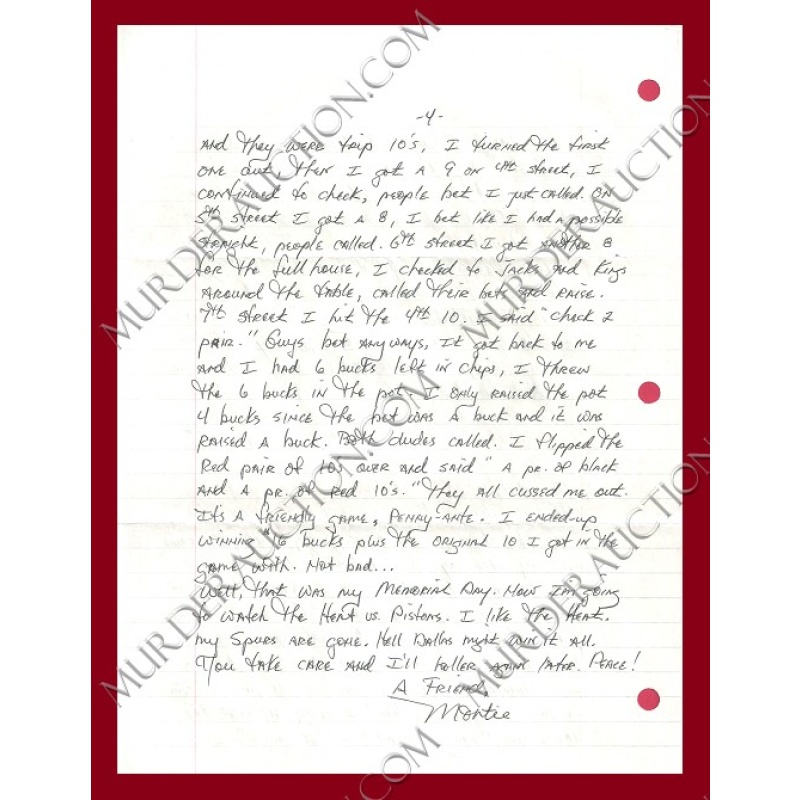 -4-
And they were trip 10's, I turned the first
one out, then I got a 9 on 4th street, I
continued to check, people bet I just called. On
5th street I got a 8, I bet like I had a possible
straight, people called. 6th street I got another 8
for the full house, I checked to Jacks and Kings
around the table, called their bets and raise.
7th street I hit the 4th 10. I said "check 2
pair." Guys bet anyways, it got back to me
and I had 6 bucks left in chips, I threw
the 6 bucks in the pot. I only raised the pot
4 bucks since the bet was a buck and it was
raised a buck. Both dudes called. I flipped the
Red pair of 10's over and said "A pr. of black
and a pr. of red 10's." They all cussed me out.
It's a friendly game, penny-ante. I ended-up
winning 16 bucks plus the original 10 I got in the
game with. Not bad...
Well, that was my Memorial Day. Now I'm going
to watch the Heat vs. Pistons. I like the Heat.
my Spurs are gone. Hell Dallas might win it all.
You take care and I'll holler again later. Peace!
A Friend,
Montie
MURDERAUCTION.COM
MURDERAUCTION.COM
MURDERAUCTION.COM
MURDERAUCTION.COM